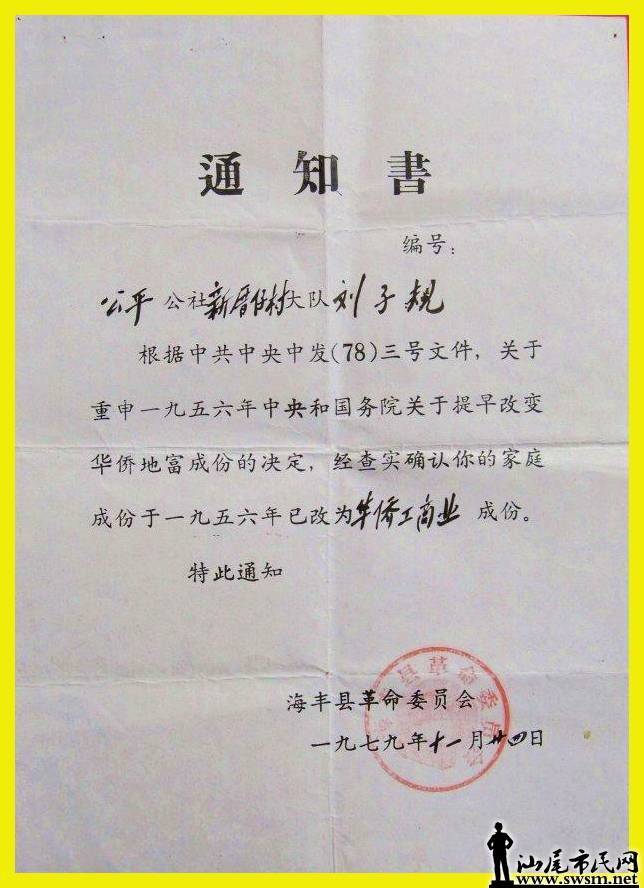 通知書
编号：
公平公社新厝仔村大队刘子规
根据中共中央中发(78)三号文件，关于
重申一九五六年中央和国务院关于提早改变
华侨地富成份的决定，经查实确认你的家庭
成份于一九五六年已改为华侨工商业 成份。
特此通知
海丰县革命委员会
一九七九年十一月廿四日
汕尾市民网
www.swsm.net